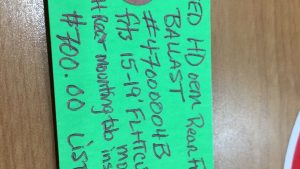 ED HD OEM Rear F
BALLAST
#47000004B
fits 15-19' FLHTCU
mo
H Rear mounting tab ins
#700.00 List